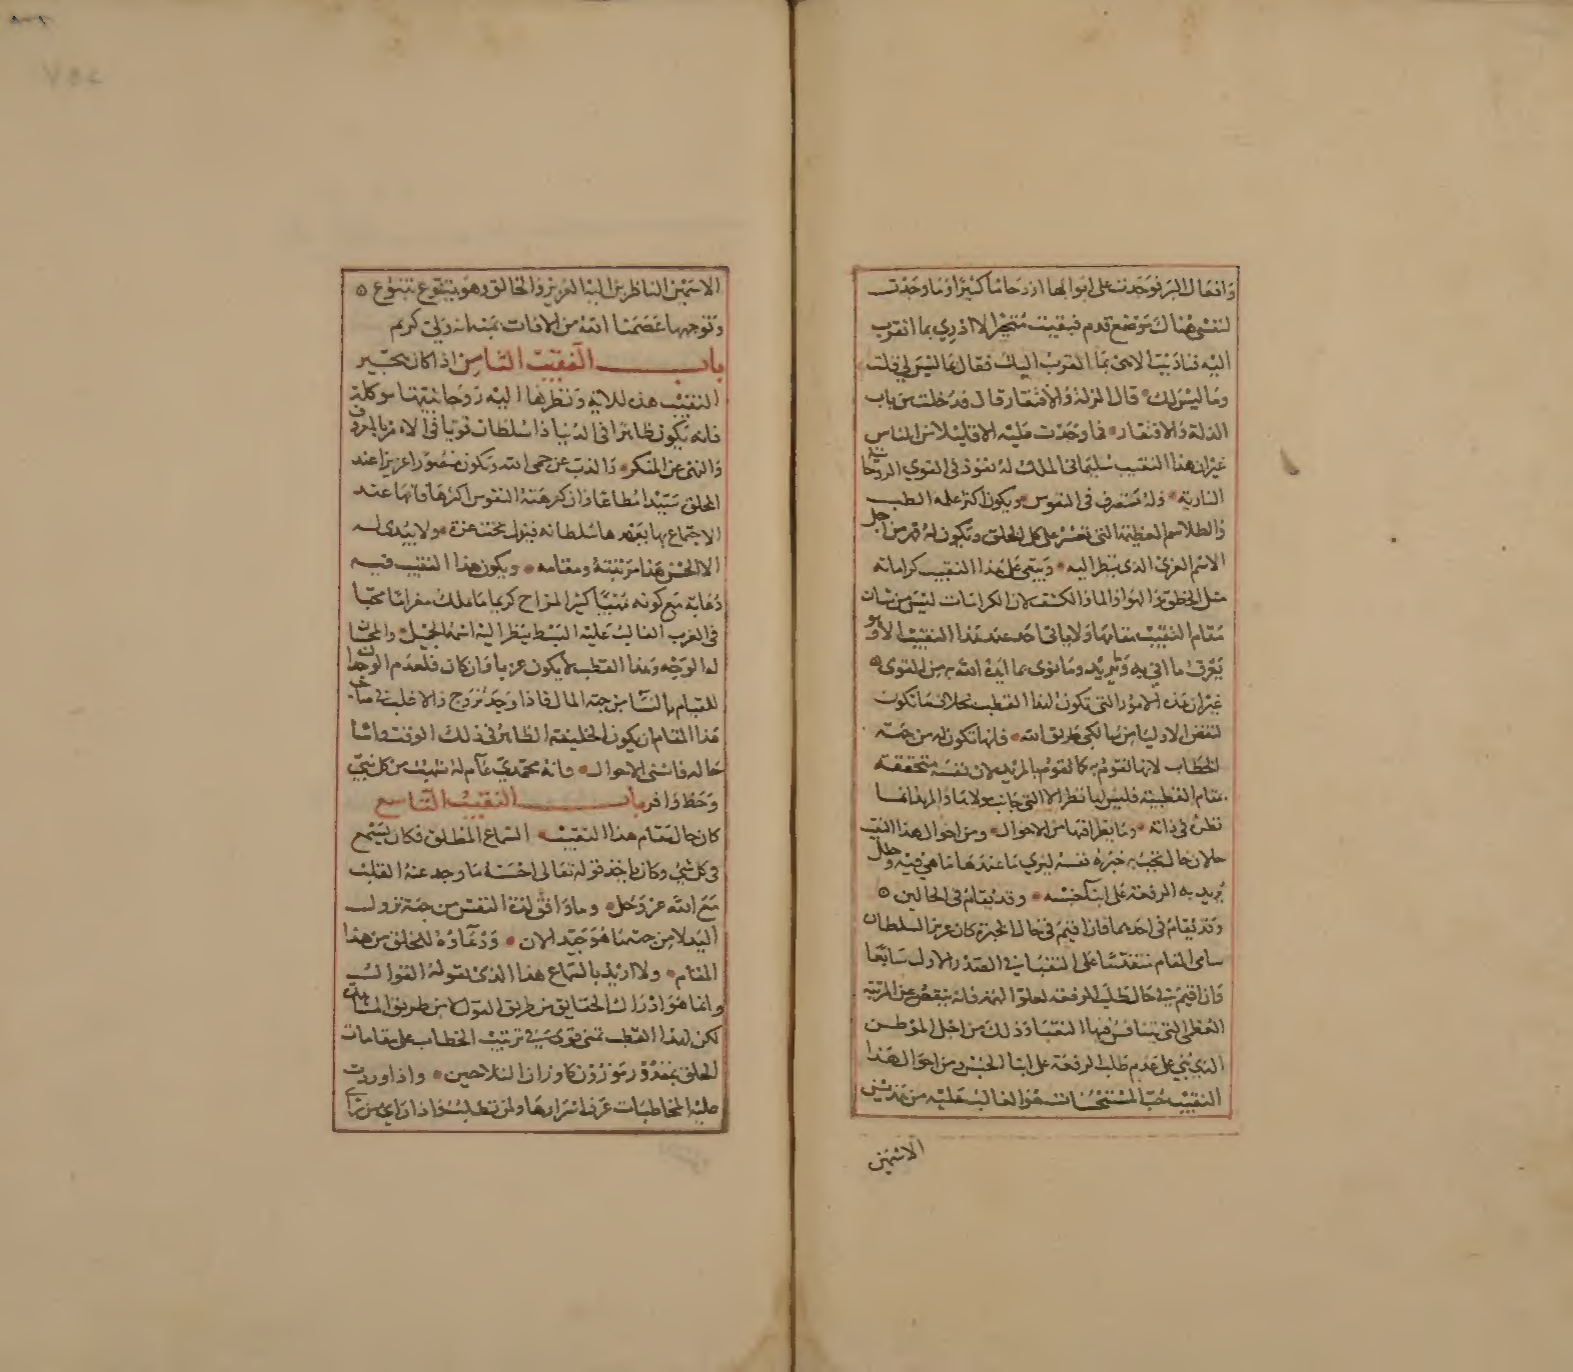 وافعال البر فوجدت على ابوابها ازدحاما كثيرا وما وجدت
لنفسي هناك موضع قدم فبقيت متحيرا لا ادري بما اتقرب
اليه فناديت الاهي بما اتقرب اليك فقال بما ليس لي قلت
وما ليس لك قال الذلة والافتقار قال فدخلت من باب
الذلة والافتقار فما وجدت عليه الا قليلا من الناس
غير ان هذا النقيب سليماني الملك له نفوذ في القوي الروحانية
النارية وله تصرف في النفوس ويكون اكثر علمه الطب
والطلاسم العظيمة التي تعسر على كل الخلق وتكون له قدر من اجل
الاسم العزيز الذي ينظر اليه وتبقى على هذا النقيب كراماته
مثل الخطوة والهواء والماء والكشف لان الكرامات ليس من ثبات
مقام النقيب مقامها ولا ياتي احد عند هذا النقيب الا وهو
يعرف ما اتي به وتريد وما نوى بما ايده الله من القوى
غير ان هذه الامور التي تكون لهذا القطب بخلاف ما تكون
لبعض الاوليا من سالكي طريق الله فانها تكون له من جهة
الخطاب لانها تقوم به كما تقوم بالمريد لان نفسه متحققة
بمقام القطبية فليس لها نظر الا الى جانب مولاها والمريد انما
نظره في ذاته وما يطرا فيها من الاحوال ومن احوال هذا النقيب
حلان حال تحب به خبره نفسه ليري ما عندها ما هي فيه وحال
يريد به الرفعة على ابنا جنسه وقد يقام في الحالين
وقد يقام في احدهما فان اقيم في حال الخبرة كان عزيز السلطان
سامي المقام متقدما على النقبا في الصدر الاول سابقا
وان اقيم في حال طلب الرفعة لعلو الهمة فانه ينقص عن المرتبة
العظمى التي يتنافس فيها النقبا وذلك من اجل الموطن
الذي بني على عدم طلب الرفعة على ابنا الجنس ومن احوال هذا
النقيب حب المستحسنات هو الغالب عليه من هذين
الاسمين
الاسمين الناظرين اليه العزيز والخالق وهو يتنوع بتنوع
وتوجهها عصمنا الله من الافات بمنه انه ولي كريم
باب النقيب الثامن اذا كان هجير
النقيب هذه للاية ونظرها اليه روحانيتها موكلة
فانه يكون ظاهرا في الدنيا ذا سلطان قويا في الامر بالمعروف
والنهي عن المنكر والذب عن حمى الله ويكون منصورا عزيزا عند
الخلق سيدا مطاعا وان كرهته النفوس اكرهها فانها عند
الاجتماع بها يقهرها سلطانه فينزل تحت عزه ولا يبدي له
الا الحسن هذا مرتبته ومقامه ويكون هذا النقيب فيه
دعابة مع كونه مهيبا كثير المزاح كريما ما ملك مغراما محبا
في العرب الغالب عليه البسط ينظر اليه اسمه الجميل والمحان
له الوجه وهذا القطب لا يكون عزبا وان كان فلعدم الوجدان
للقيام بالنسا من جهة المال فاذا وجد تزوج والاغلب في صاحب
هذا المقام ان يكون الخليفة الظاهر في ذلك الوقت واما
حاله فاسنى الاحوال وانه محمدي عام له نصيب من كل نبي
وحظ وافر باب النقيب التاسع
كان حال مقام هذا النقيب السماع المطلق فكان يستمع
في كل شي وكان ياخذ قوله تعالى احسنه ما وجد عنه القلب
مع الله عز وجل وما وافق لذة النفس من جهة نزولـ
اليه لا من جهة ما هو جيد الان ودعاؤه للخلق من هذا
المقام ولا اريد بالسماع هذا الذي تقوله القوالب
وانما هو ادراك الحقايق من طريق القول لا من طريق المشاهدة
لكن لهذا القطب تمني قوي في ترتيب الخطاب على مقامات
الخلق بمقدور موزون كاوزان التلاحين واذا وردت
عليه المخاطبات عرف اسرارها ولمن تطلب فاذا راي من